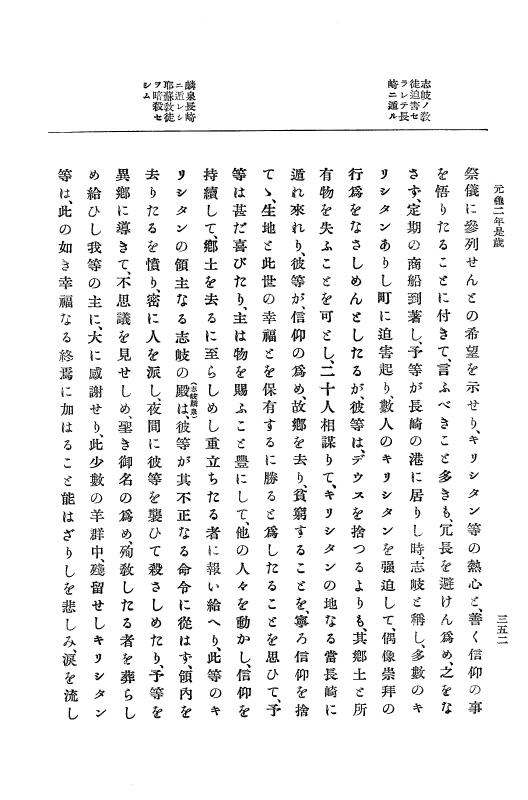 元龜二年是歲
三五二
志岐ノ敎
徒迫害セ
ラレテ長
崎ニ遁ル
麟泉長崎
ニ遁レシ
耶蘇敎徒
ヲ暗殺セ
シム
祭儀に參列せんとの希望を示せり、キリシタン等の熱心と、善く信仰の事
を悟りたることに付きて、言ふべきこと多きも、冗長を避けん爲め、之をな
さず、定期の商船到著し、予等が長崎の港に居りし時、志岐と稱し、多數のキ
リシタンありし町に迫害起り、數人のキリシタンを强迫して、偶像崇拜の
行爲をなさしめんとしたるが、彼等は、デウスを捨つるよりも、其鄕土と所
有物を失ふことを可とし、二十人相謀りて、キリシタンの地なる當長崎に
遁れ來れり、彼等が、信仰の爲め、故鄕を去り、貧窮することを、寧ろ信仰を捨
てゝ、生地と此世の幸福とを保有するに勝ると爲したることを思ひて、予
等は甚だ喜びたり、主は物を賜ふこと豐にして、他の人々を動かし、信仰を
持續して、鄕土を去るに至らしめし重立ちたる者に報い給へり、此等のキ
リシタンの領主なる志岐の殿(志岐麟泉)は、彼等が其不正なる命令に從はず、領內を
去りたるを憤り、密に人を派し、夜間に彼等を襲ひて殺さしめたり、予等を
異鄕に導きて、不思議を見せしめ、聖き御名の爲め、殉敎したる者を葬らし
め給ひし我等の主に、大に感謝せり、此少數の羊群中、殘留せしキリシタン
等は、此の如き幸福なる終焉に加はること能はざりしを悲しみ、淚を流し